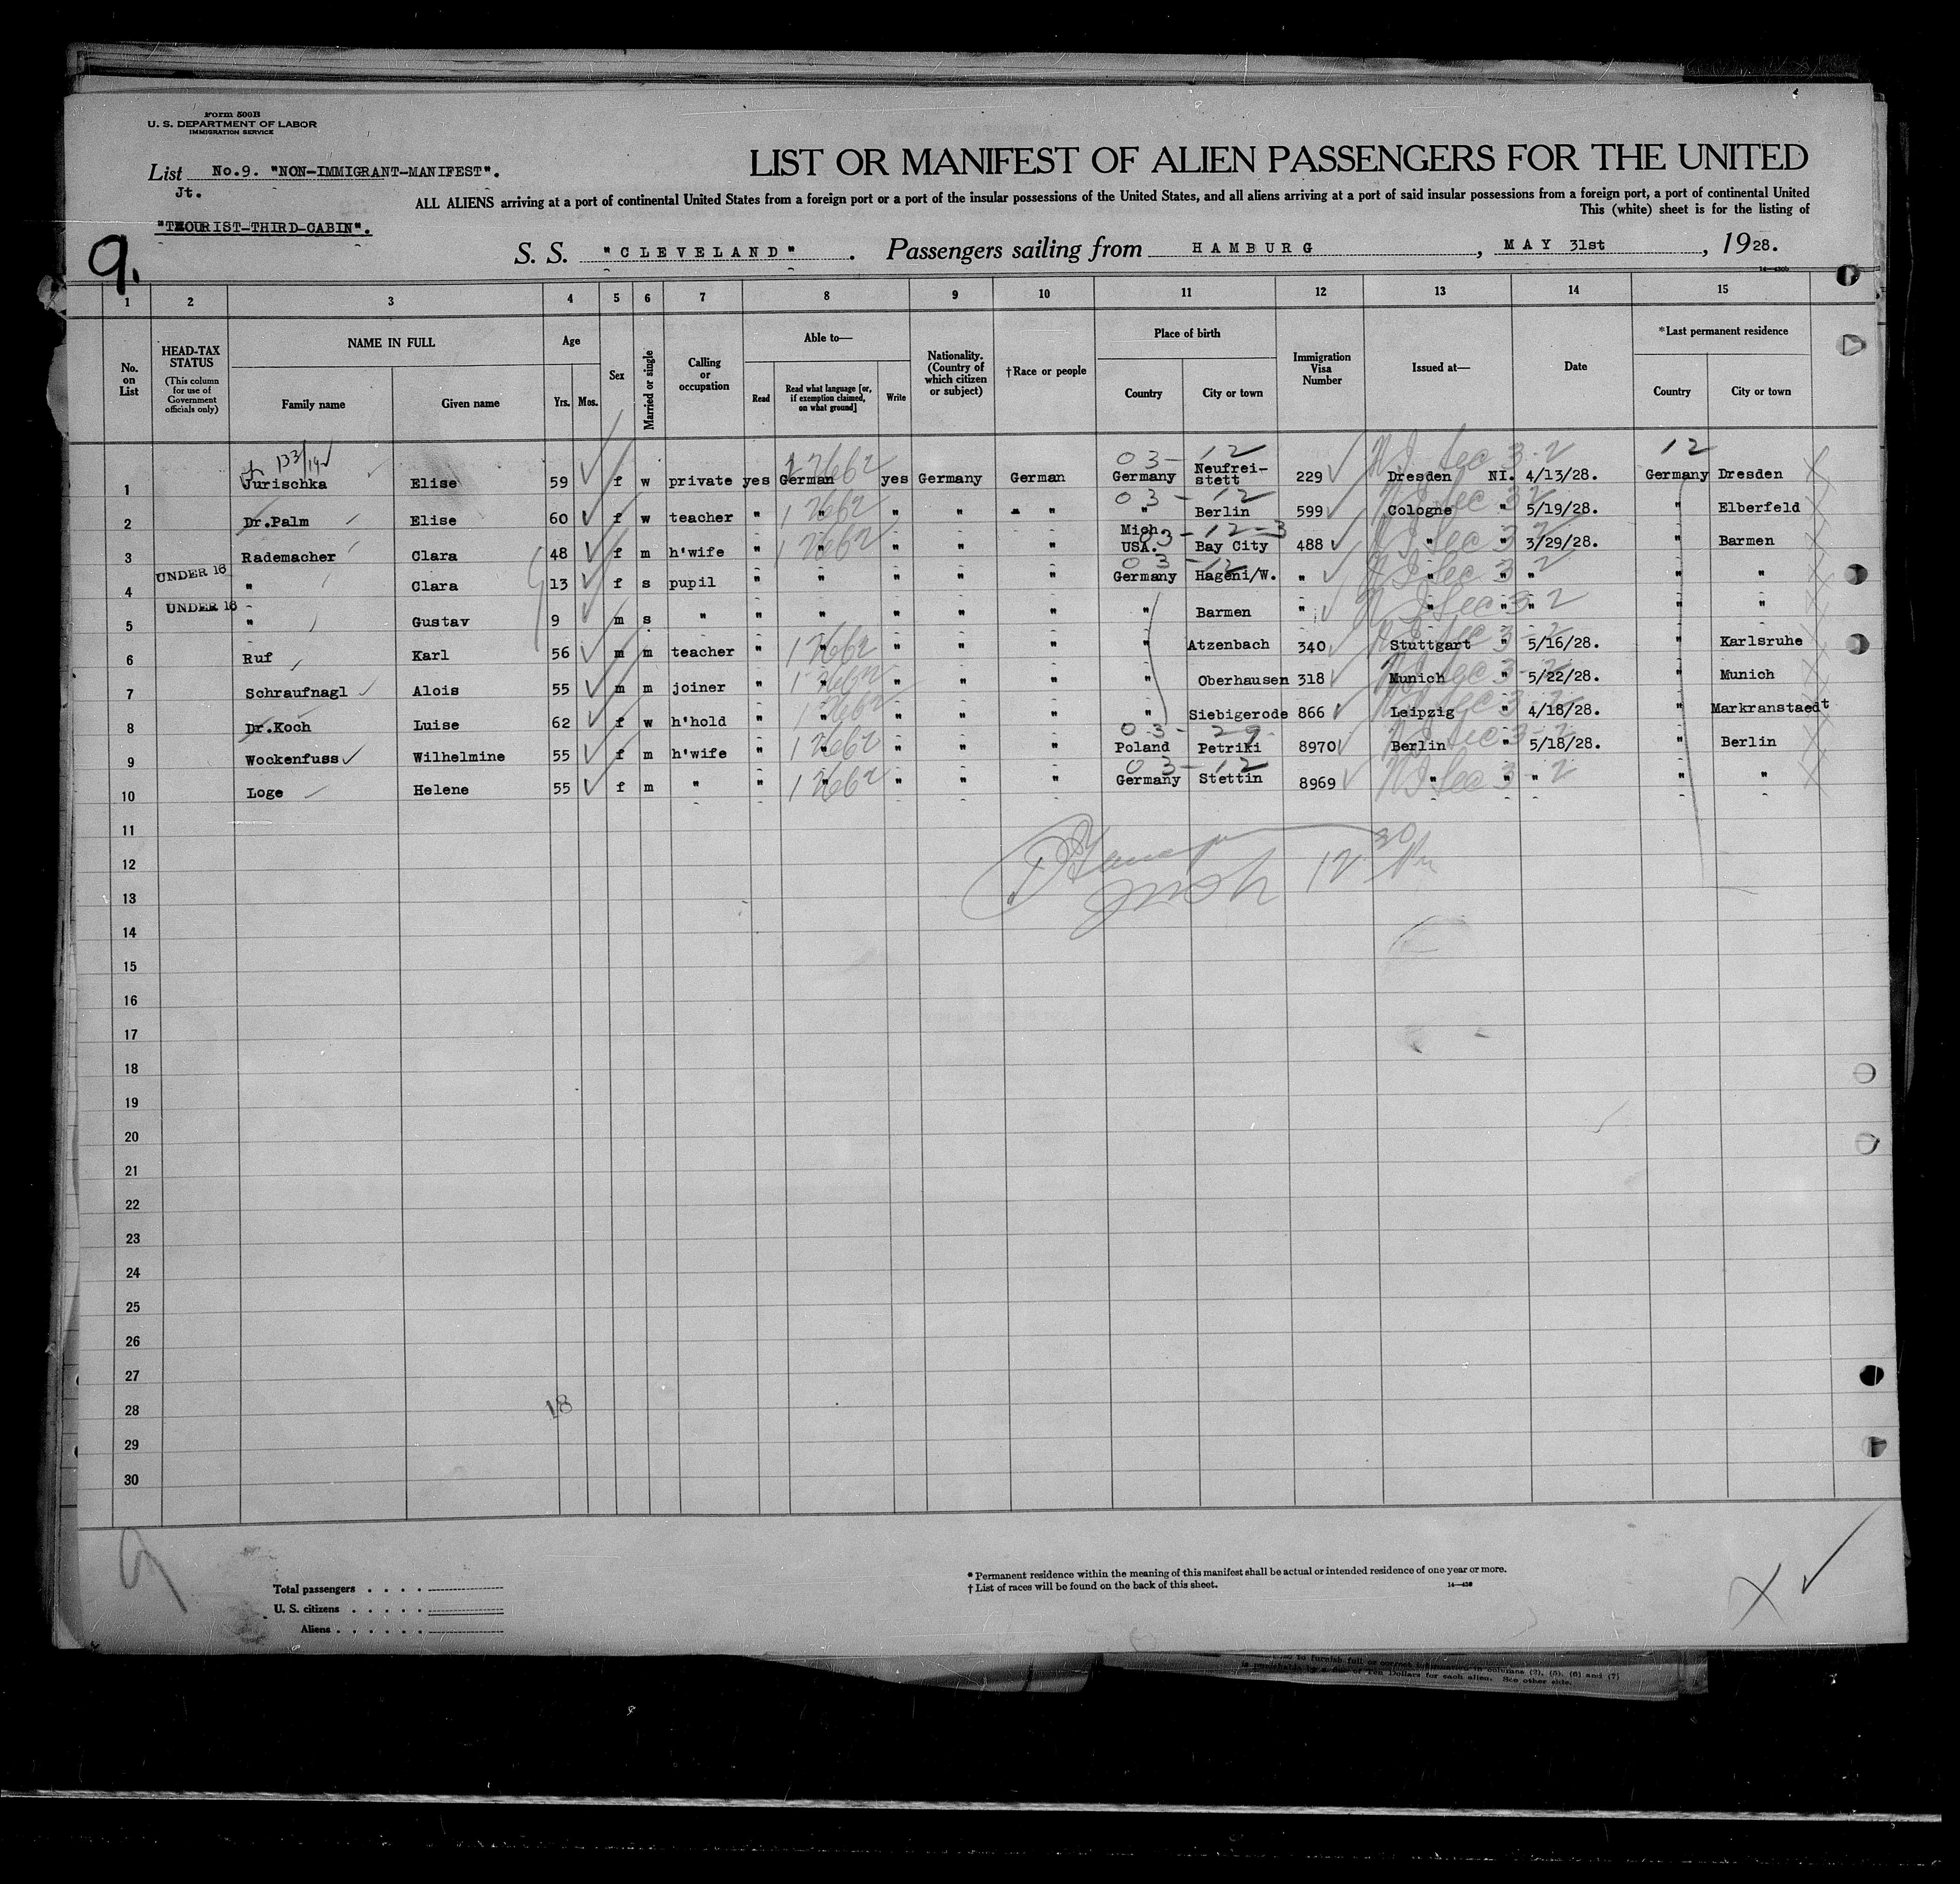 Form 500B
U. S. DEPARTMENT OF LABOR
IMMIGRATION SERVICE
List No.9. "NON-IMMIGRANT-MANIFEST".
Jt.
"TOURIST-THIRD-CABIN".
9.
LIST OR MANIFEST OF ALIEN PASSENGERS FOR THE UNITED
ALL ALIENS arriving at a port of continental United States from a foreign port or a port of the insular possessions of the United States, and all aliens arriving at a port of said insular possessions from a foreign port, a port of continental United
This (white) sheet is for the listing of
S. S. "CLEVELAND". Passengers sailing from HAMBURG, MAY 31st, 1928.
1 2 3 4 5 6 7 8 9 10 11 12 13 14 15
No. on List
HEAD-TAX STATUS (This column for use of Government officials only)
NAME IN FULL Family name Given name
Age Yrs. Mos.
Sex
Married or single
Calling or occupation
Able to— Read Read what language [or, if exemption claimed, on what ground] Write
Nationality. (Country of which citizen or subject)
†Race or people
Place of birth Country City or town
Immigration Visa Number
Issued at—
Date
*Last permanent residence Country City or town
03- 12 12
1 Jurischka Elise 59 f w private yes German yes Germany German Germany Neufrei-stett 229 Dresden NI. 4/13/28. Germany Dresden
03 - 12
2 Dr.Palm Elise 60 f w teacher " " " " " " Berlin 599 Cologne " 5/19/28. " Elberfeld
3 Rademacher Clara 48 f m h'wife " " " " " Mich. USA. Bay City 488 " " 3/29/28. " Barmen
UNDER 16
4 " Clara 13 f s pupil " " " " " Germany Hageni/W. " " " " " "
UNDER 16
5 " Gustav 9 m s " " " " " " " Barmen " " " " " "
6 Ruf Karl 56 m m teacher " " " " " " Atzenbach 340 Stuttgart " 5/16/28. " Karlsruhe
7 Schraufnagl Alois 55 m m joiner " " " " " " Oberhausen 318 Munich " 5/22/28. " Munich
8 Dr.Koch Luise 62 f w h'hold " " " " " " Siebigerode 866 Leipzig " 4/18/28. " Markranstaedt
03- 29
9 Wockenfuss Wilhelmine 55 f m h'wife " " " " " Poland Petriki 8970 Berlin " 5/18/28. " Berlin
03- 12
10 Loge Helene 55 f m " " " " " " Germany Stettin 8969 " " " " "
11
12
13
14
15
16
17
18
19
20
21
22
23
24
25
26
27
28 18
29
30
9
Total passengers
U. S. citizens
Aliens
* Permanent residence within the meaning of this manifest shall be actual or intended residence of one year or more.
† List of races will be found on the back of this sheet.
to furnish full or correct information in columns (2), (5), (6) and (7)
is punishable by a fine of Ten Dollars for each alien. See other side.